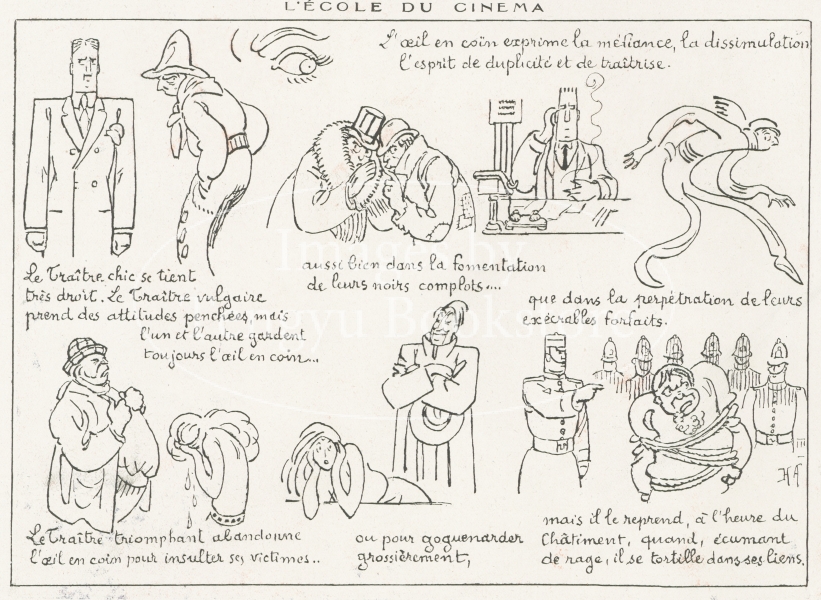 L'ÉCOLE DU CINEMA
L'œil en coin exprime la méfiance, la dissimulation
l'esprit de duplicité et de traîtrise.
Le Traître chic se tient
très droit. Le Traître vulgaire
prend des attitudes penchées, mais
l'un et l'autre gardent
toujours l'œil en coin...
aussi bien dans la fomentation
de leurs noirs complots....
que dans la perpétration de leurs
exécrables forfaits.
Le Traître triomphant abandonne
l'œil en coin pour insulter ses victimes..
ou pour goguenarder
grossièrement,
mais il le reprend, à l'heure du
Châtiment, quand, écumant
de rage, il se tortille dans ses liens.
HA